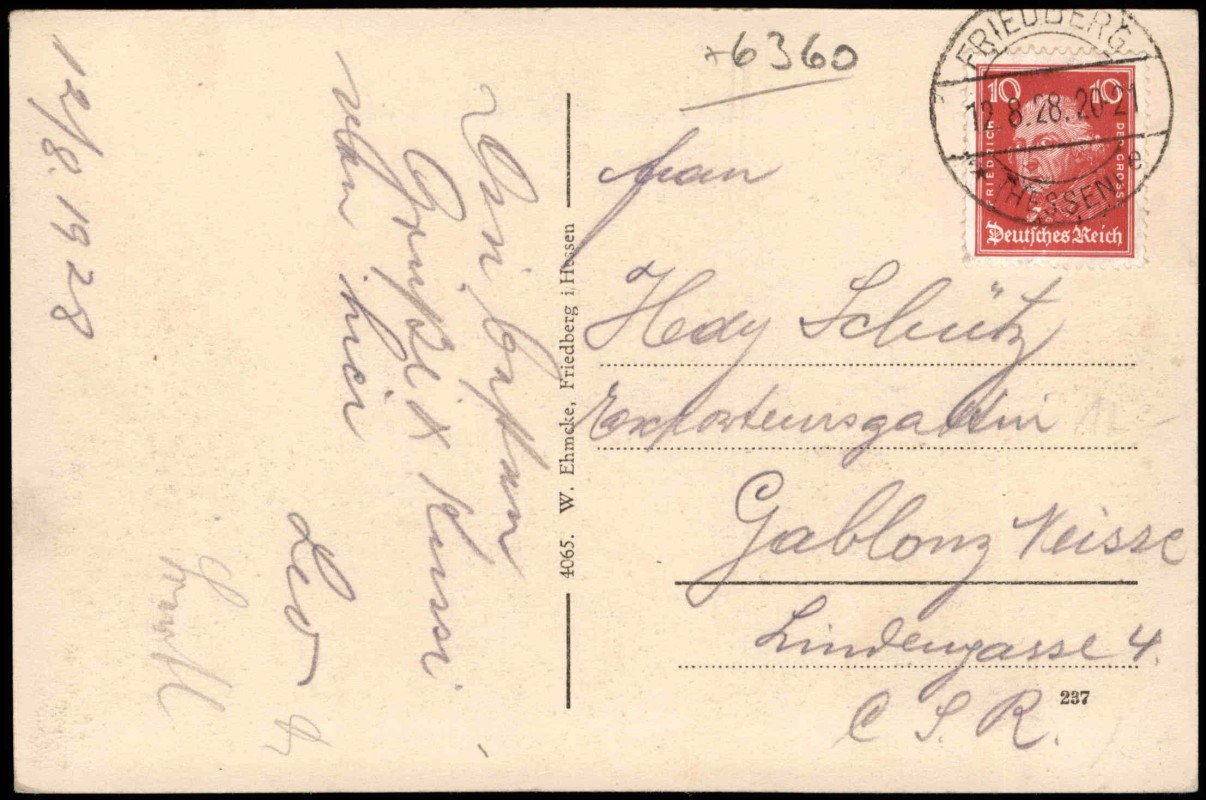 12/8.1928
Die besten
Grüße & Küsse
von hier
Leo
&
+6360
FRIEDBERG
12.8.28.20-21
(HESSEN) e
10 10
FRIEDRICH DER GROSSE
Deutsches Reich
Frau
Hedy Schütz
Exporteursgattin
Gablonz Neisse
Lindengasse 4.
C S. R.
237
4065. W. Ehmcke, Friedberg i. Hessen